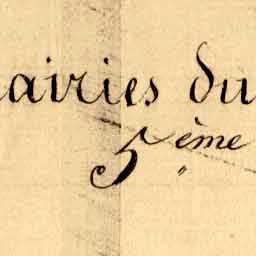 airies du
5ème "